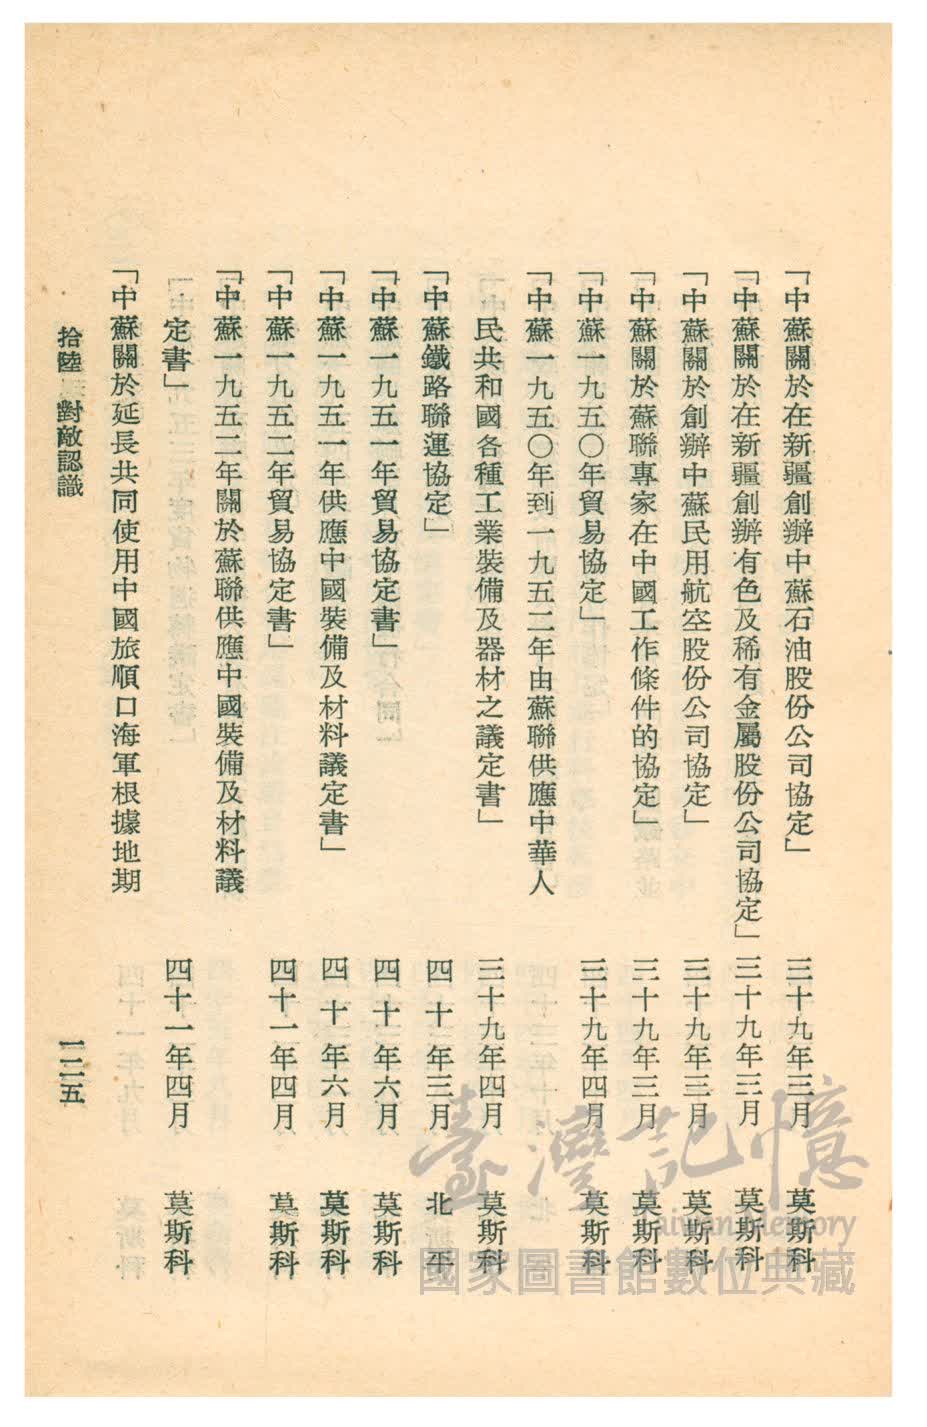 「中蘇關於在新疆創辦中蘇石油股份公司協定」 三十九年三月 莫斯科
「中蘇關於在新疆創辦有色及稀有金屬股份公司協定」 三十九年三月 莫斯科
「中蘇關於創辦中蘇民用航空股份公司協定」 三十九年三月 莫斯科
「中蘇關於蘇聯專家在中國工作條件的協定」 三十九年三月 莫斯科
「中蘇一九五〇年貿易協定」 三十九年四月 莫斯科
「中蘇一九五〇年到一九五二年由蘇聯供應中華人
民共和國各種工業裝備及器材之議定書」 三十九年四月 莫斯科
「中蘇鐵路聯運協定」 四十年三月 北平
「中蘇一九五一年貿易協定書」 四十年六月 莫斯科
「中蘇一九五一年供應中國裝備及材料議定書」 四十年六月 莫斯科
「中蘇一九五二年貿易協定書」 四十一年四月 莫斯科
「中蘇一九五二年關於蘇聯供應中國裝備及材料議
定書」 四十一年四月 莫斯科
「中蘇關於延長共同使用中國旅順口海軍根據地期
拾陸 對敵認識
一二五
臺灣記憶
Taiwan Memory
國家圖書館數位典藏